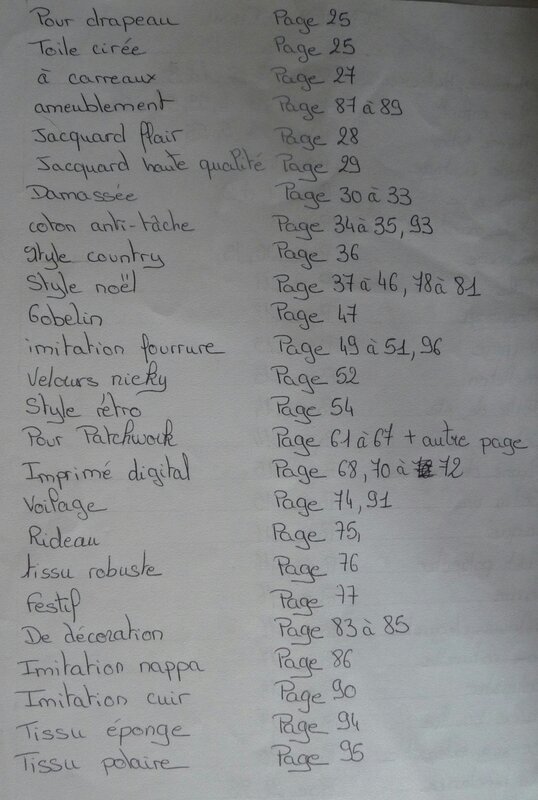 Pour drapeau Page 25
Toile cirée Page 25
à carreaux Page 27
ameublement Page 87 à 89
Jacquard flair Page 28
Jacquard haute qualité Page 29
Damassée Page 30 à 33
coton anti-tâche Page 34 à 35, 93
Style country Page 36
Style noël Page 37 à 46, 78 à 81
Gobelin Page 47
imitation fourrure Page 49 à 51, 96
Velours nicky Page 52
Style rétro Page 54
Pour Patchwork Page 61 à 67 + autre page
Imprimé digital Page 68, 70 à 72
Voilage Page 74, 91
Rideau Page 75,
tissu robuste Page 76
Festif Page 77
De décoration Page 83 à 85
Imitation nappa Page 86
Imitation cuir Page 90
Tissu éponge Page 94
Tissu polaire Page 95